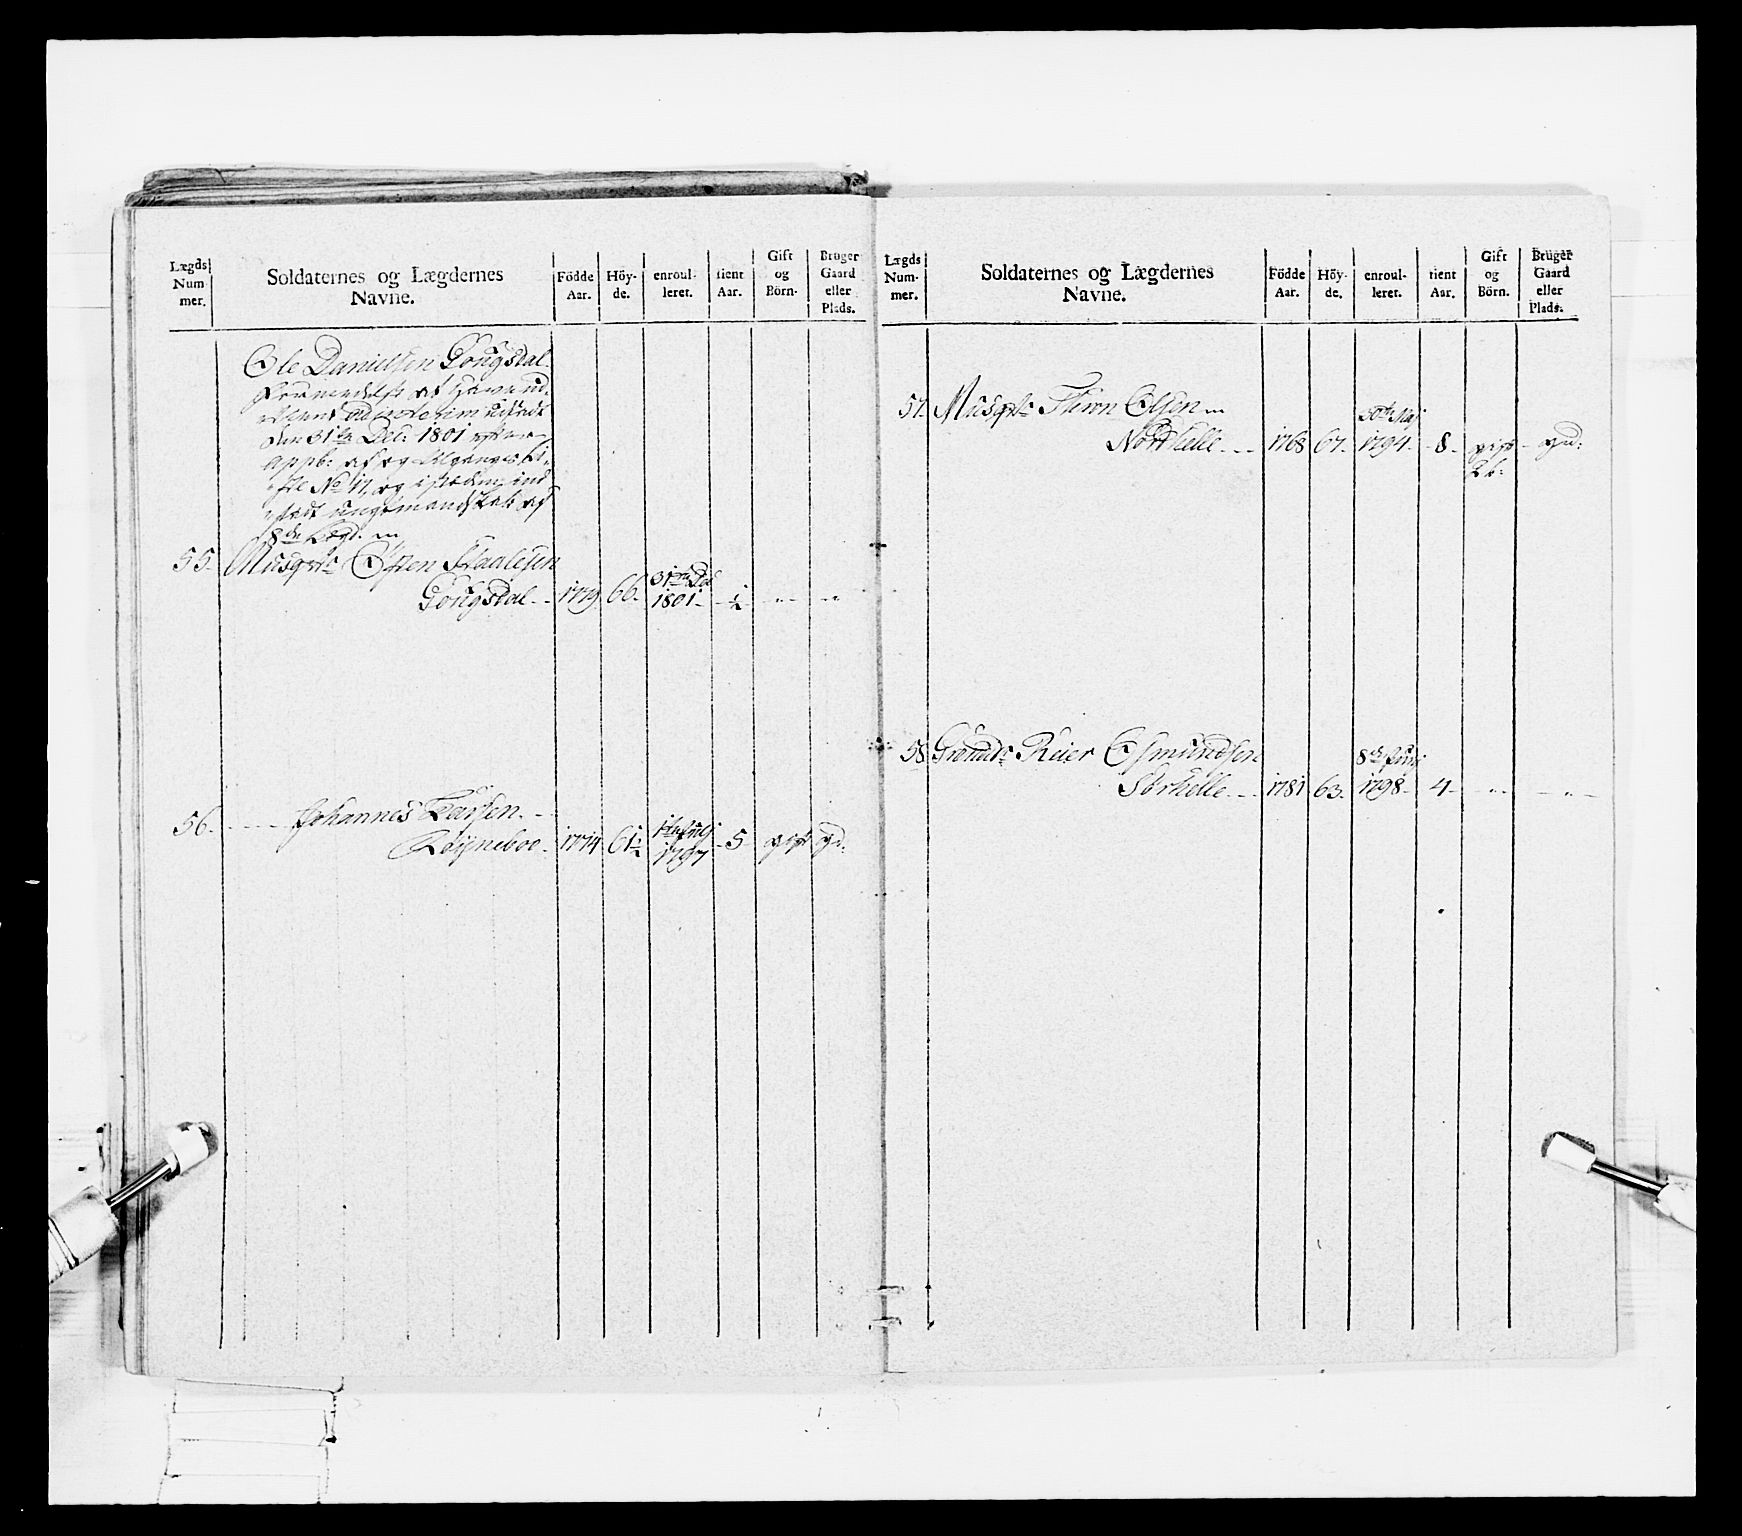 Lægds Num- mer.
Soldaternes og Lægdernes Navne.
Födde Aar.
Höy- de.
enroul- leret.
tient Aar.
Gift og Börn.
Bruger Gaard eller Plads.
Ole Danielsen Gougsdal
ad interim
den 31te Dec: 1801
appb: af og tilgangs Li-
ste No 17, og i stæden ind-
ungemandskab af
8de Lægd.
55. Musqtr Østen Staalesen
Gougsdal - 1779 66. 31te Dec 1801 - ½ - " - "
56. - - - Johannes Larsen. -
Løyneboe. 1774 61½ 1797 - 5 - gift gd:
Lægds Num- mer.
Soldaternes og Lægdernes Navne.
Födde Aar.
Höy- de.
enroul- leret.
tient Aar.
Gift og Börn.
Bruger Gaard eller Plads.
57. Musqtr Olsen
Nordhelle - - 1768 67. 30te 1794. - 8 - gift - gd:
58. Reier Osmundsen
Sørhelle - - 1781 63. 8de Junj 1798 - 4 - " - "